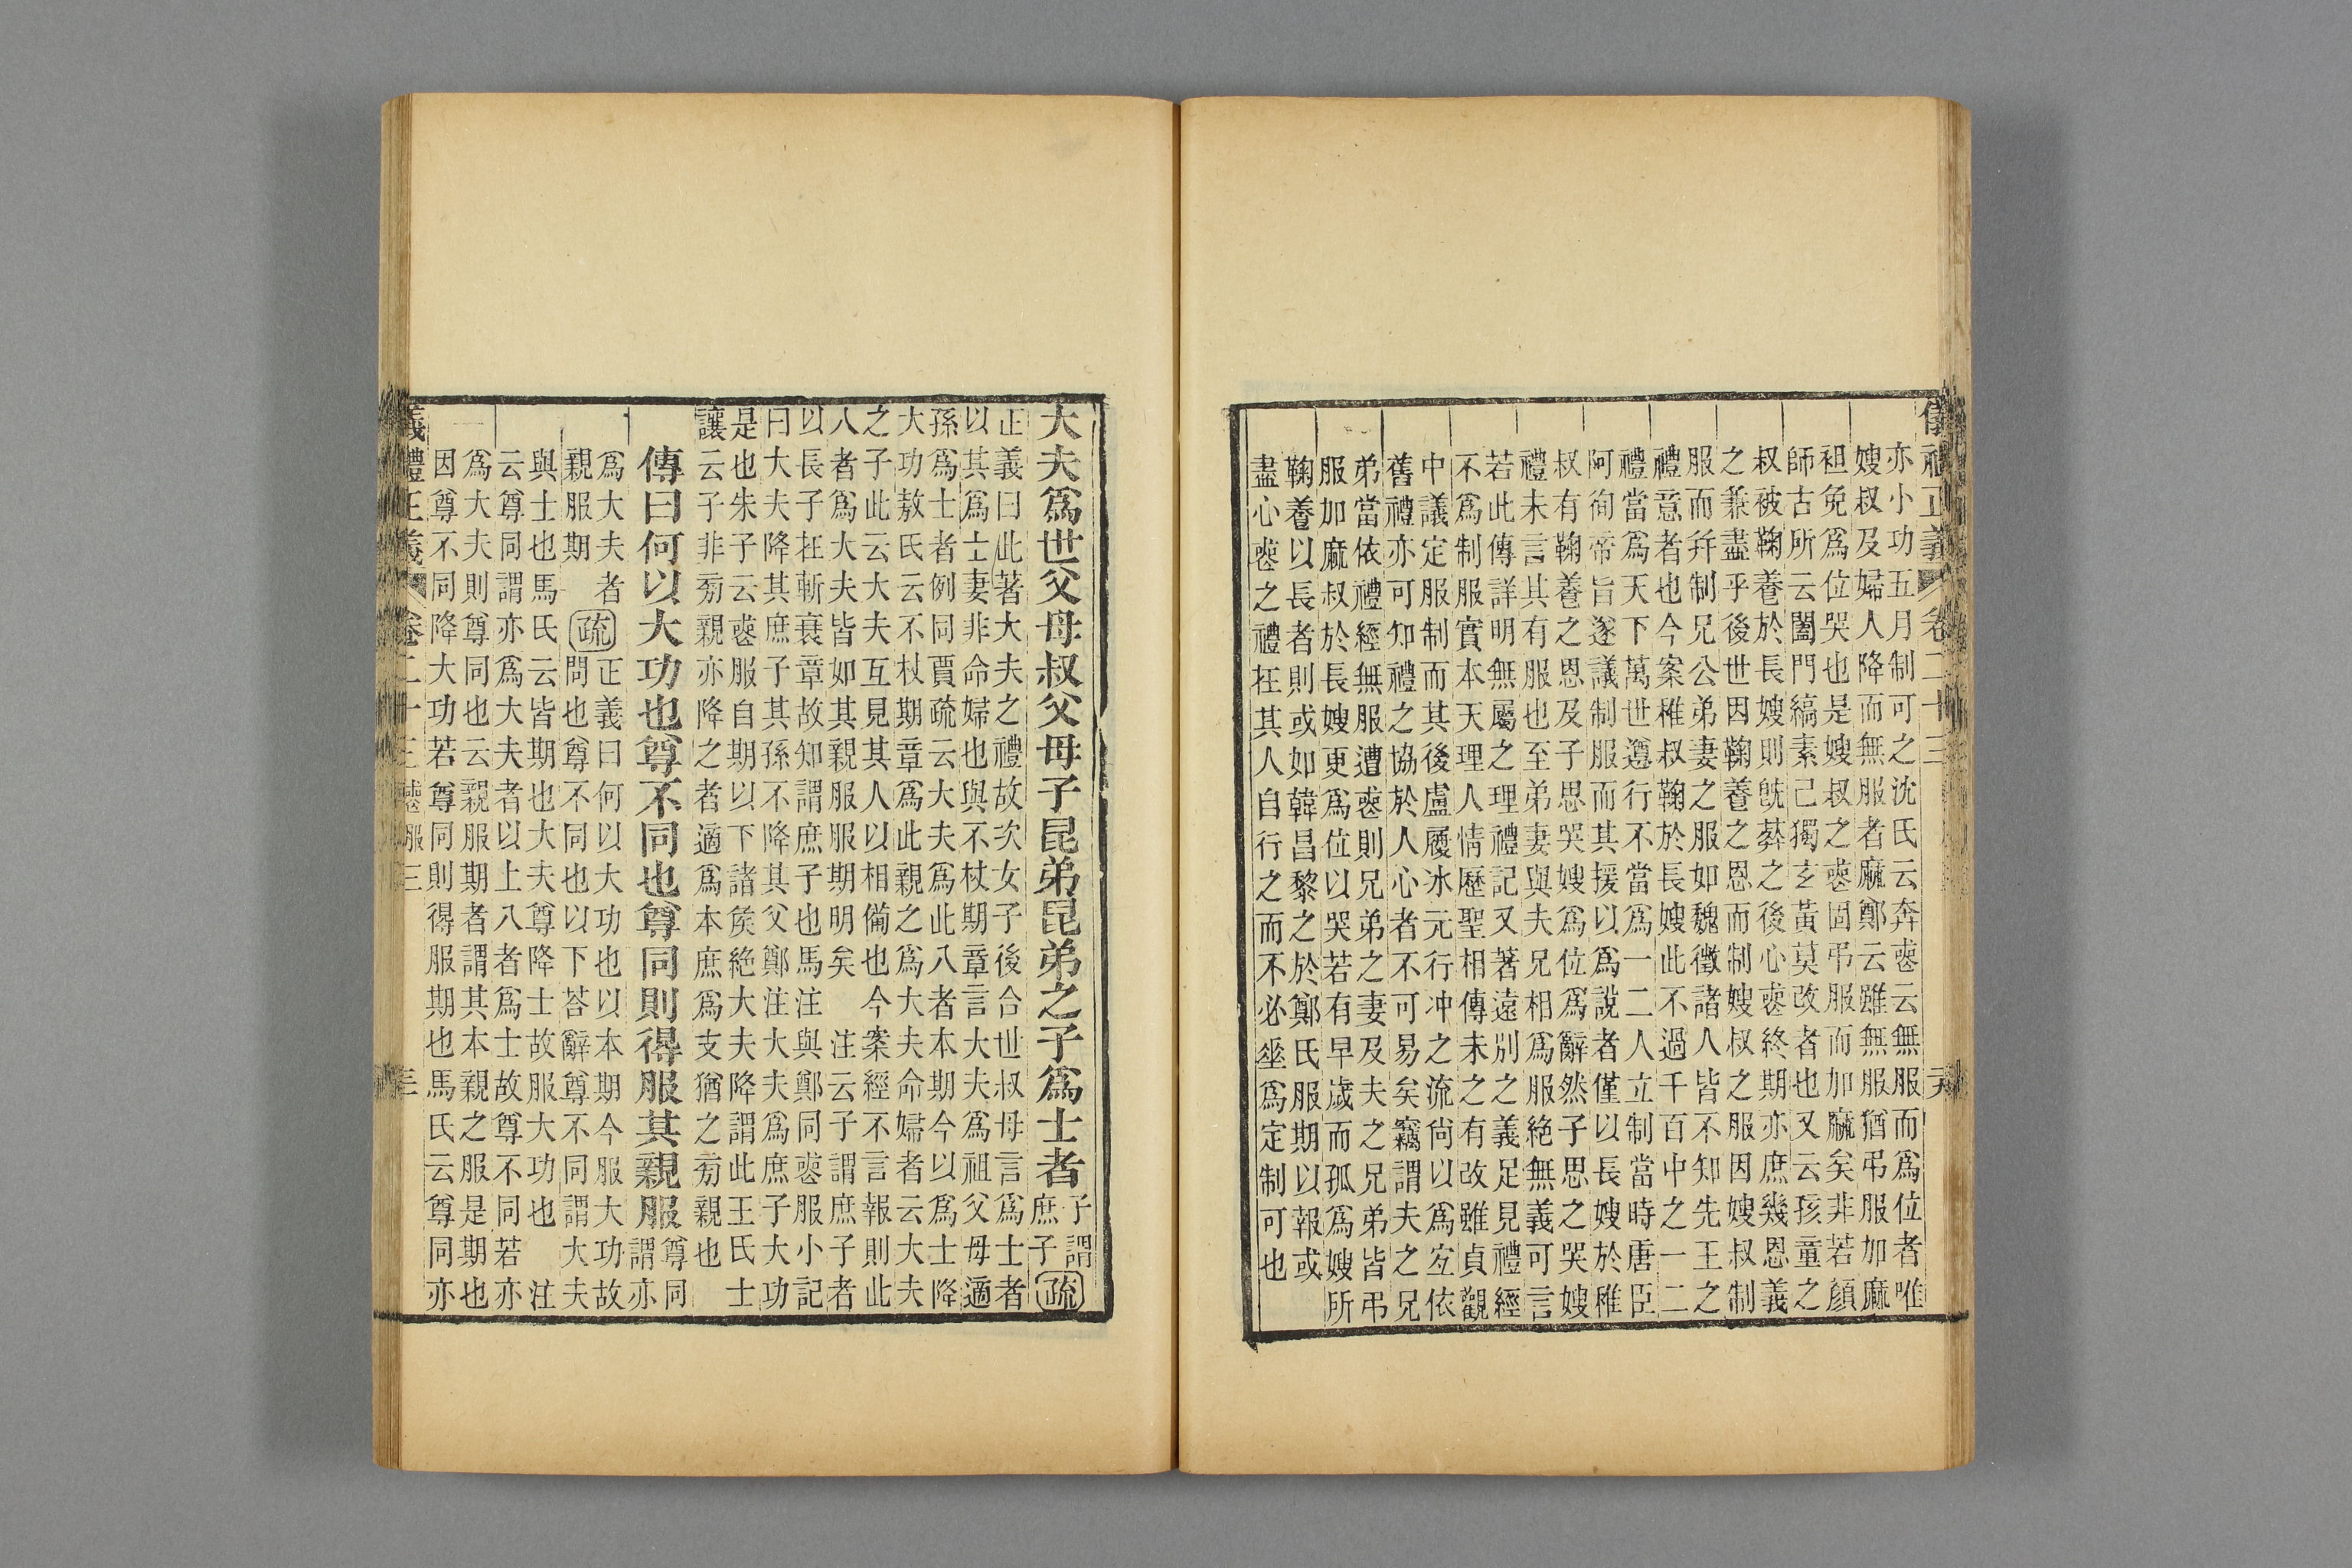 儀禮正義 卷二十三
亦小功五月制可之沈氏云奔喪云無服而爲位者唯
嫂叔及婦人降而無服者麻鄭云雖無服猶弔服加麻
袒免爲位哭也是嫂叔之喪固弔服而加麻矣非若顏
師古所云闔門縞素己獨玄黃莫改者也又云孩童之
叔被鞠養於長嫂則旣葬之後心喪終期亦庶幾恩義
之兼盡乎後世因鞠養之恩而制嫂叔之服因嫂叔制
服而幷制兄公弟妻之服如魏徵諸人皆不知先王之
禮意者也今案稚叔鞠於長嫂此不過千百中之一二
禮當爲天下萬世遵行不當爲一二人立制當時唐臣
阿徇帝旨遂議制服而其援以爲說者僅以長嫂於稚
叔有鞠養之恩及子思哭嫂爲位爲辭然子思之哭嫂
禮未言其有服也至弟妻與夫兄相爲服絶無義可言
若此傳詳明無屬之理禮記又著遠別之義足見禮經
不爲制服實本天理人情歷聖相傳未之有改雖貞觀
中議定服制而其後盧履冰元行冲之流尙以爲宜依
舊禮亦可知禮之協於人心者不可易矣竊謂夫之兄
弟當依禮經無服遭喪則兄弟之妻及夫之兄弟皆弔
服加麻叔於長嫂更爲位以哭若有早歲而孤爲嫂所
鞠養以長者則或如韓昌黎之於鄭氏服期以報或
盡心喪之禮在其人自行之而不必垂爲定制可也
大夫爲世父母叔父母子昆弟昆弟之子爲士者子謂庶子疏
正義曰此著大夫之禮故次女子後合世叔母言爲士者
以其爲士妻非命婦也與不杖期章言大夫爲祖父母適
孫爲士者例同賈疏云大夫爲此八者本期今以爲士降
大功敖氏云不杖期章爲此親之爲大夫命婦者云大夫
之子此云大夫互見其人以相備也今案經不言報則此
八者爲大夫皆如其親服服期明矣 注云子謂庶子者
以長子在斬衰章故知謂庶子也馬注與鄭同喪服小記
曰大夫降其庶子其孫不降其父鄭注大夫爲庶子大功
是也朱子云喪服自期以下諸侯絶大夫降謂此王氏士
讓云子非旁親亦降之者適爲本庶爲支猶之旁親也
傳曰何以大功也尊不同也尊同則得服其親服尊同謂亦
爲大夫者親服期疏正義曰何以大功也以本期今服大功故
問也尊不同也以下荅辭尊不同謂大夫
與士也馬氏云皆期也大夫尊降士故服大功也 注
云尊同謂亦爲大夫者以上八者爲士故尊不同若亦
爲大夫則尊同也云親服期者謂其本親之服是期也
因尊不同降大功若尊同則得服期也馬氏云尊同亦